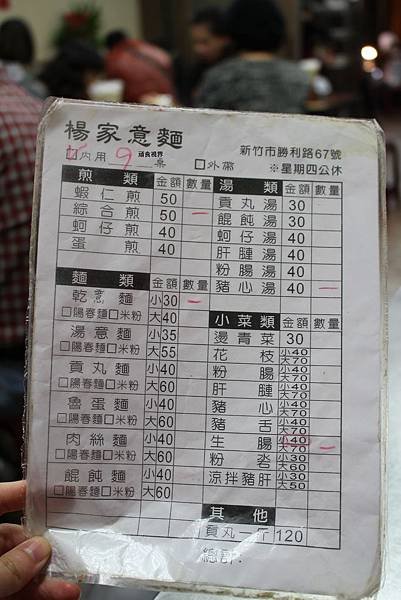 楊家意麵
新竹市勝利路67號
☑內用 9 桌 □外帶 ※星期四公休
隨食視界
煎類 金額 數量
蝦仁煎 50
綜合煎 50 一
蚵仔煎 40
蛋煎 40
麵類 金額 數量
乾意麵 小30 一
□陽春麵□米粉 大40
湯意麵 小35
□陽春麵□米粉 大55
貢丸麵 小40
□陽春麵□米粉 大60
魯蛋麵 小40
□陽春麵□米粉 大60
肉絲麵 小40
□陽春麵□米粉 大60
餛飩麵 小40
□陽春麵□米粉 大60
湯類 金額 數量
貢丸湯 30
餛飩湯 30
蚵仔湯 40
肝腫湯 40
粉腸湯 40
豬心湯 40 一
小菜類 金額 數量
燙青菜 30
花枝 小40 大70
粉腸 小40 大70
肝腫 小40 大70
豬心 小40 大70
豬舌 小40 大70
生腸 小40 大70 一
粉沯 小30 大60
涼拌豬肝 小30 大50
其他
貢丸一斤 120
總計: